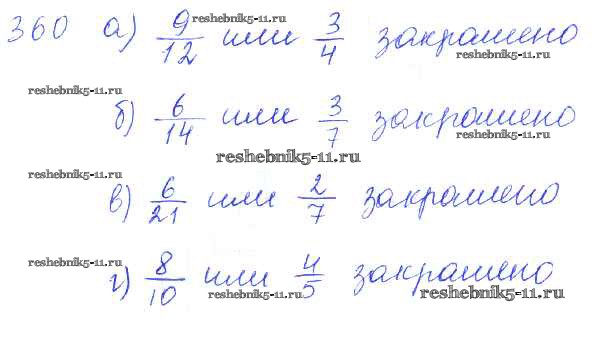 reshebnik5-11.ru
360 а) 9/12 или 3/4 закрашено
reshebnik5-11.ru
reshebnik5-11.ru
б) 6/14 или 3/7 закрашено
reshebnik5-11.ru
reshebnik5-11.ru
reshebnik5-11.ru
в) 6/21 или 2/7 закрашено
reshebnik5-11.ru
г) 8/10 или 4/5 закрашено
reshebnik5-11.ru
reshebnik5-11.ru